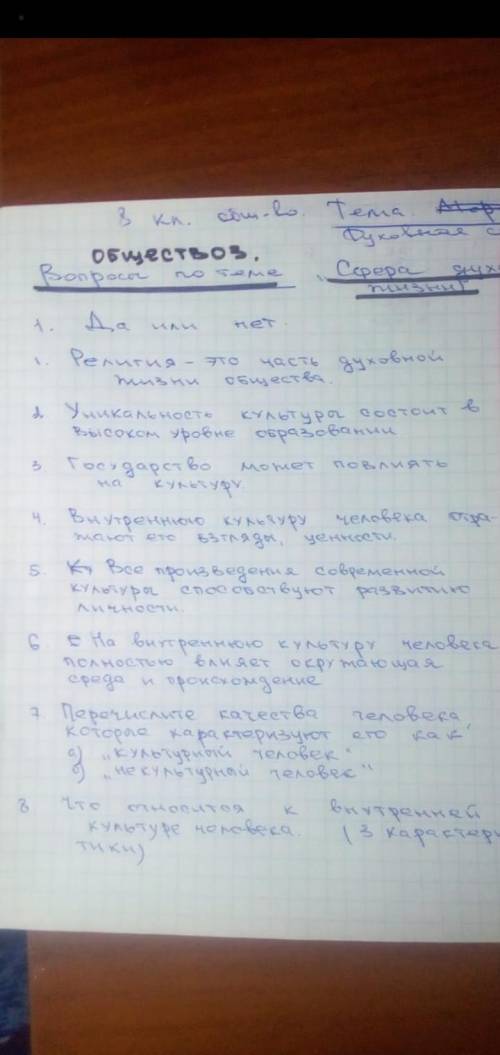 8 кл. общ-во. Тема.
Духовная с
ОБЩЕСТВОЗ.
Вопросы по теме „Сфера дух
жизни"
1. Да или нет.
1. Религия - это часть духовной
жизни общества.
2 Уникальность культуры состоит в
высоком уровне образовании
3 Государство может повлиять
на культуру.
4. Внутреннюю культуру человека отра-
жают его взгляды, ценности.
5. Все произведения современной
культуры способствуют развитию
личности.
6 На внутреннюю культуру человека
полностью влияет окружающая
среда и происхождение
7 Перечислите качества человека,
которые характеризуют его как
а) „культурный человек"
б) „некультурный человек"
8 Что относится к внутренней
культуре человека. (3 характери
тики)